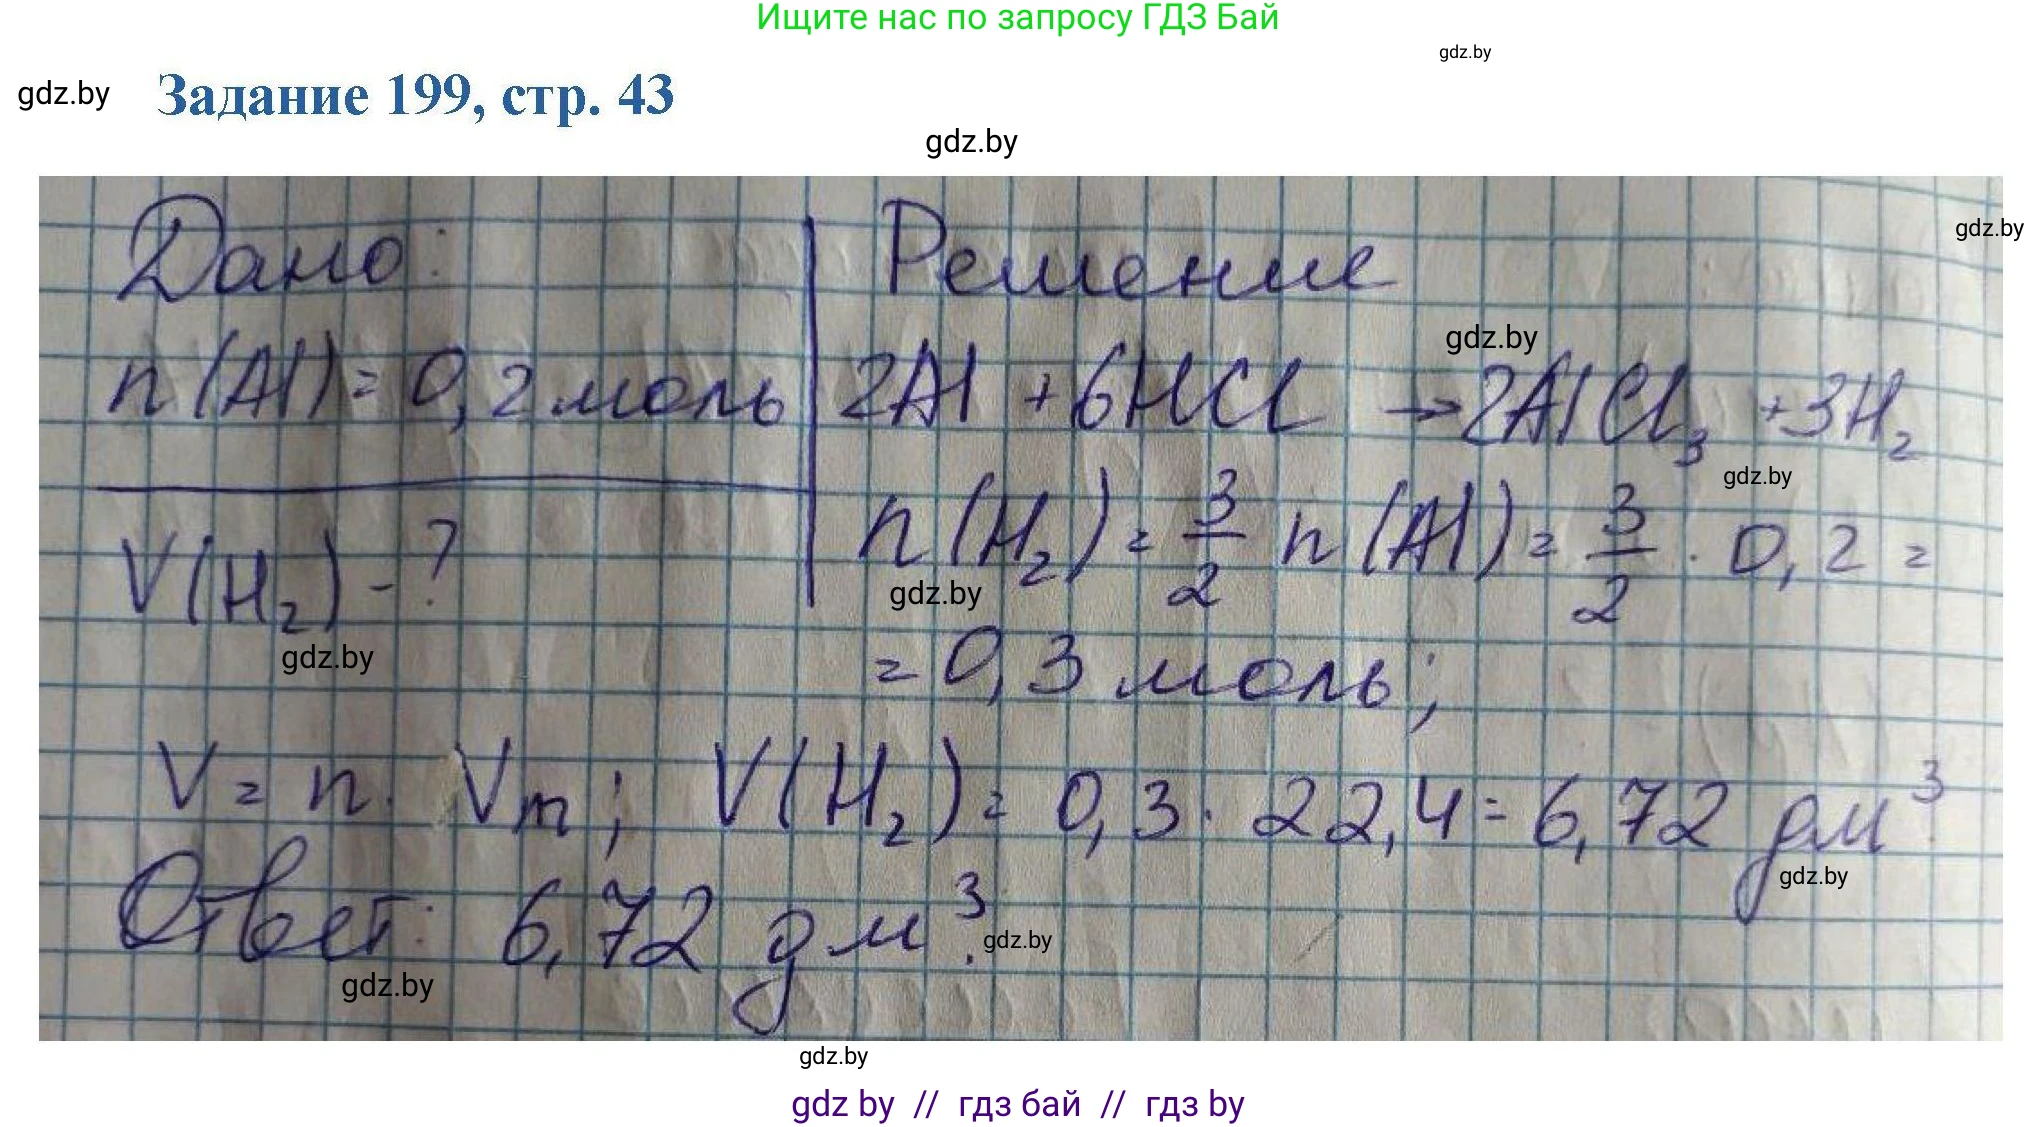 Ищите нас по запросу ГДЗ Бай
gdz.by
gdz.by
Задание 199, стр. 43
gdz.by
gdz.by
Дано:
Решение
gdz.by
n (Al) = 0,2 моль
2Al + 6HCl → 2AlCl₃ + 3H₂
gdz.by
V(H₂) - ?
n (H₂) = 3/2 n (Al) = 3/2 · 0,2 =
gdz.by
gdz.by
= 0,3 моль;
V = n · Vm; V(H₂) = 0,3 · 22,4 = 6,72 дм³
gdz.by
Ответ: 6,72 дм³.
gdz.by
gdz.by
gdz.by
gdz by // гдз бай // гдз by